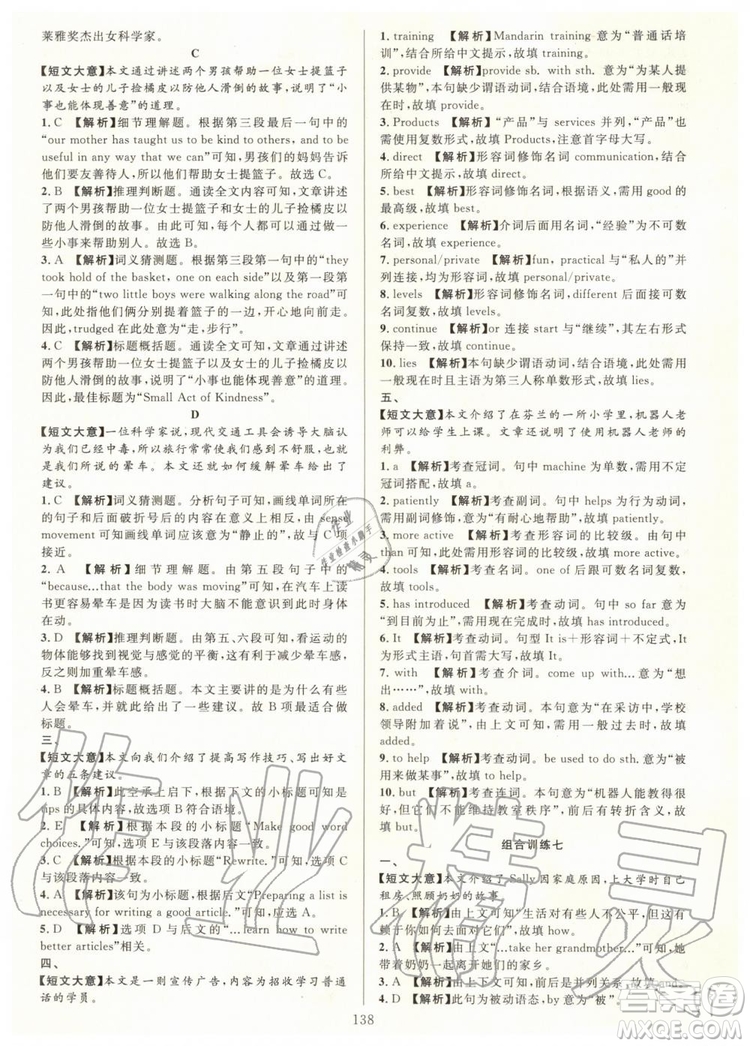 莱雅奖杰出女科学家。
C
【短文大意】本文通过讲述两个男孩帮助一位女士提篮子
以及女士的儿子捡橘皮以防他人滑倒的故事，说明了“小
事也能体现善意”的道理。
1. C 【解析】细节理解题。根据第三段最后一句中的
“our mother has taught us to be kind to others, and to be
useful in any way that we can”可知，男孩们的妈妈告诉
他们要友善待人，所以他们帮助别人。故选 C。
2. B 【解析】推理判断题。通读全文内容可知，文章讲述
了两个男孩帮助一位女士提篮子和女士的儿子捡橘皮以
防他人滑倒的故事。由此可知，这两个男孩和那个女孩用
一些小事来帮助别人。故选 B。
3. A 【解析】词义猜测题。根据第三段第一句中的“they
took hold of the basket, one on each side”以及第一段第
一句中的“two little boys were walking along the road”可
知，这两个小男孩分别提着篮子的一边，和女士并行前行。
因此，trudged 在此处意为“走，步行”。
4. C 【解析】标题概括题。通读全文可知，文章通过讲述
两个男孩帮助一位女士提篮子以及女士的儿子捡橘皮以
防他人滑倒的故事，说明了“小事也能体现善意”的道理。
因此，最佳标题为“Small Act of Kindness”。
D
【短文大意】一位科学家说，现代交通工具会诱导大脑认
为我们已经中毒，所以我们常常感到不舒服，这就是我们
所熟悉的晕车。本文还介绍了如何缓解晕车等一些
建议。
1. C 【解析】词义猜测题。分析句子可知，画线单词所在
的句子和前面的句子存在转折关系，由后面的 sense
movement 可知画线单词应为“静止的”。故与 C 项意思
接近。
2. A 【解析】细节理解题。根据第五段第一个句子中的
“because...that the body was moving”可知，在汽车上读
书更容易晕车是因为读书时大脑不能意识到身体在移
动。
3. D 【解析】推理判断题。由第五、六段可知，看运动的
物体能够让视觉与感觉达到平衡，因此能够减少晕车感，
反之则加重晕车感。
4. B 【解析】标题概括题。本文主要介绍了人们为什么
会晕车，并提供了一些建议。故 B 项最适合做标
题。
三、
【短文大意】本文向我们介绍了提高写作技巧、写出好文
章的五条建议。
1. B 【解析】此空承上启下，根据本段最后一句中的
tips 可知，故选项 B 符合语境。
2. E 【解析】根据本段的小标题“Make good word
choices.”可知，选项 E 与该段落内容一致。
3. C 【解析】根据本段的小标题“Rewrite.”可知，选项 C
与该段落内容一致。
4. A 【解析】该句为小标题，根据后文“Preparing a list is
necessary for writing a good article.”可知，故选 A。
5. D 【解析】选项 D 与后文中的“...learn how to write
better articles”相关。
四、
【短文大意】本文是一则宣传广告，内容为招收学习普通
话的学员。
1. training 【解析】Mandarin training 意为“普通话培
训”，结合所给中文提示，故填 training。
2. provide 【解析】provide sb. with sth. 意为“为某人提
供某物”，本句缺少谓语动词，结合语境可知，需用一般现
在时，故填 provide。
3. Products 【解析】“产品”与 services 并列，“产品”为
可数名词，需用复数形式，故填 Products，注意首字母大写。
4. direct 【解析】形容词修饰名词 communication，结合
所给中文提示，故填 direct。
5. best 【解析】形容词修饰名词，根据语义，需用 good 的
最高级，故填 best。
6. experience 【解析】介词后面用名词，“经验”为不可数
名词，故填 experience。
7. personal/private 【解析】fun, practical 与“私人的”并
列连接，均为形容词，故填 personal/private。
8. levels 【解析】形容词修饰名词，different 后面接可数
名词复数，故填 levels。
9. continue 【解析】or 连接 start 与“继续”，其左右形式
保持一致，故填 continue。
10. lies 【解析】本句缺少谓语动词，结合语境可知，需用
一般现在时且主语为第三人称单数形式，故填 lies。
五、
【短文大意】本文介绍了在芬兰的一所小学里，机器人老
师可以给学生上课。文章说明了使用机器人老师的
利弊。
1. a 【解析】考查冠词。句中 machine 为单数，需用不定
冠词搭配，故填 a。
2. patiently 【解析】考查副词。句中 helps 为行为动词，
需用副词修饰，意为“有耐心地帮助”，故填 patiently。
3. more active 【解析】考查形容词的比较级。由下文可
知，此处需用形容词的比较级，故填 more active。
4. tools 【解析】考查名词。one of 后跟可数名词复数，故
填 tools。
5. has introduced 【解析】考查动词。句中 so far 意为
“到目前为止”，需用现在完成时，故填 has introduced。
6. It 【解析】考查动词。句型 It is＋形容词＋不定式，It
为形式主语，句首需大写，故填 It。
7. with 【解析】考查动词。come up with... 意为“想
出……”，故填 with。
8. added 【解析】考查动词。本句意为“在采访中，学校
领导附加说”，故填 added。
9. to help 【解析】考查动词。be used to do sth. 意为“被
用来做某事”，故填 to help。
10. but 【解析】考查连词。本句意为“机器人能教得很
好，但它们不能维持教室秩序”，前后为转折关系，故
填 but。
组合训练七
一、
【短文大意】本文介绍了 Sally 因家庭原因，上大学时自己
租房、照顾奶奶的故事。
1. B 【解析】由上文可知“生活对有些人不公平，但这
赖于你如何去面对它们”，故填 how。
2. A 【解析】由上文“...take her grandmother...”可知，她
带着奶奶一起离开她们的家乡。
3. A 【解析】由上文可知，前后是并列关系，故填 and。
4. D 【解析】此句为被动语态，意为“被”。
138